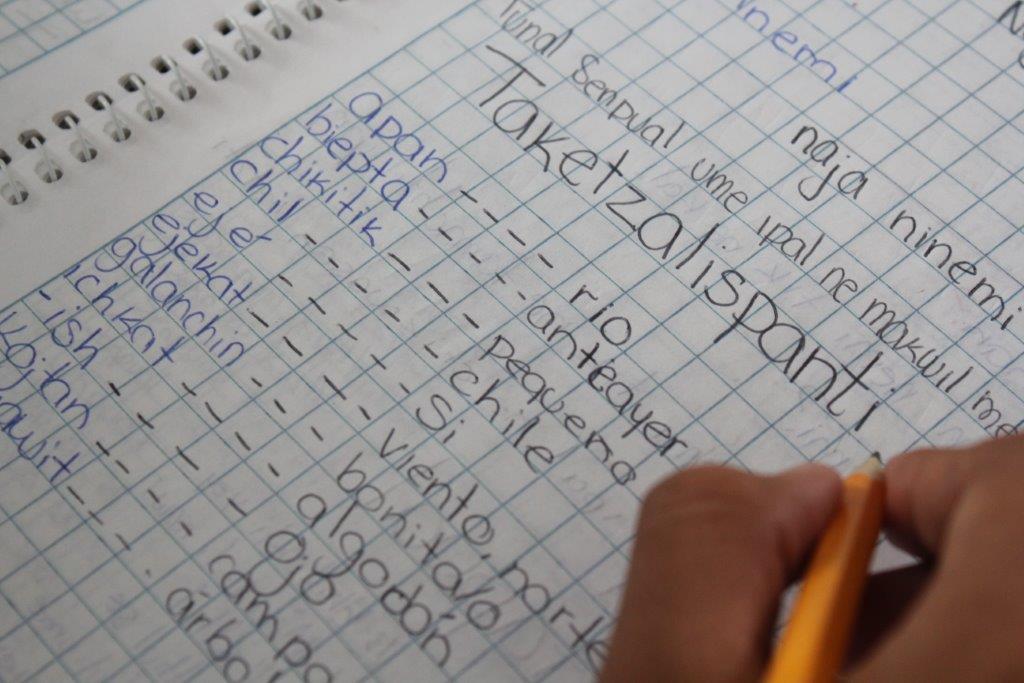 nemi
naja ninemi
Tunal Senpual ume ipal ne makwil me
Taketzalispanti
apan - - - - rio
biepta - - - - anteayer
chikitik - - - - pequeño
chil - - - - chile
eje - - - - si
ejekat - - - - viento, norte
galanchin - - - -
ichkat - - - - algodón
- ish - - - - ojo
kojtan - - - - campo
awit - - - - árbo